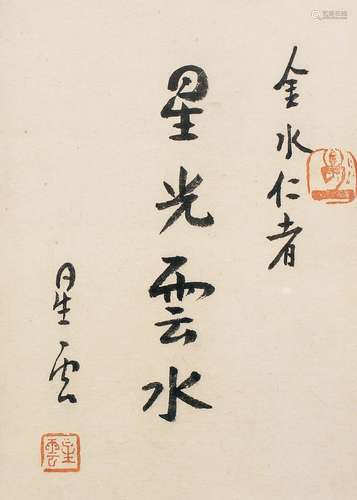 金水仁者
星光雲水
星云
星雲